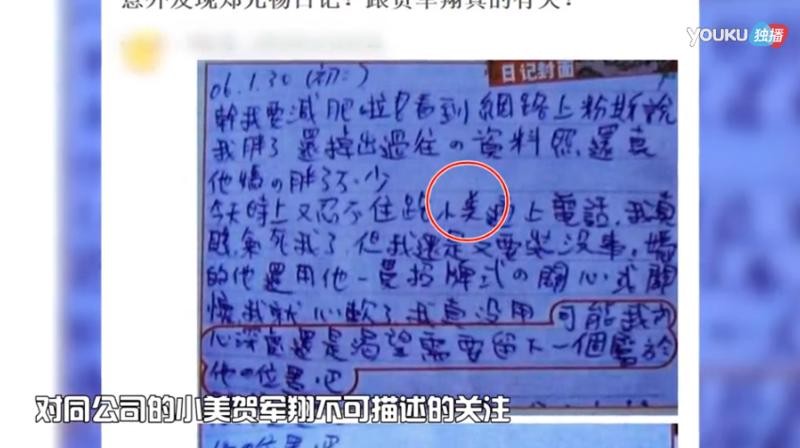 意外发现郑元畅日记？跟贺军翔真的有关？
YOUKU 独播
日记封面
06.1.30 (初二)
幹我要減肥啦！看到網路上粉斯說
我胖了還掉出過往の資料照還真
他媽の胖了不少
今天晚上又忍不住跟小美通上電話,我真
氣死我了但我還是又要裝沒事,媽
的他還用他一貫招牌式の關心式關
懷,我就心軟了我真沒用 可能我內
心深處還是渴望需要留下一個屬於
他の位置吧
对同公司的小美贺军翔不可描述的关注
他の位置吧